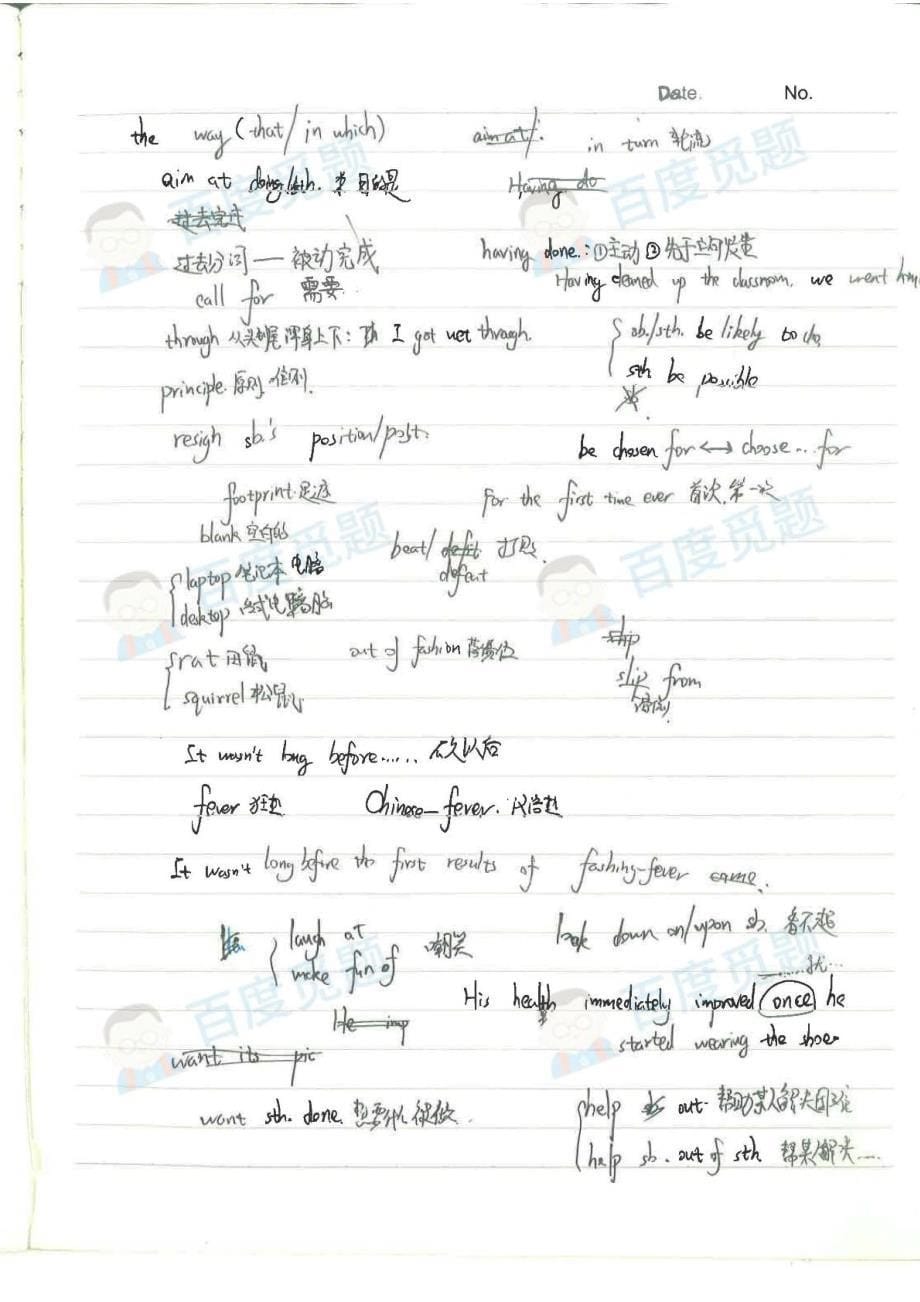 Date. No.
the way (that/in which)
aim at/: in turn 轮流
aim at doing/sth. 目的是
Having do
过去完成
过去分词 — 被动完成
having done: ①主动 ②先于主句发生
call for 需要
Having cleaned up the classroom, we went
through 从头到尾 浑身上下: I got wet through.
sb./sth. be likely to do
principle 原则
sth be possible
resigh sb.'s position/post.
be chosen for ↔ choose...for
footprint 足迹
for the first time ever 首次, 第一次
blank 空白的
beat/ defit 打败.
defeat
laptop 笔记本电脑
desktop 台式电脑
rat 田鼠
squirrel 松鼠
out of fashion
slip
slip from
It wasn't long before...... 不久以后
fever 狂热 Chinese-fever. 汉语热
It wasn't long before the first results of fashing-fever came.
laugh at
make fun of
嘲笑
look down on/upon sb. 看不起
His health immediately improved once he
started wearing the shoe
He imp
want its pic
want sth. done. 想要 被做.
help sb out. 帮助某人解决困难
help sb. out of sth 帮某解决...
百度觅题
百度觅题
百度觅题
百度觅题
百度觅题
百度觅题